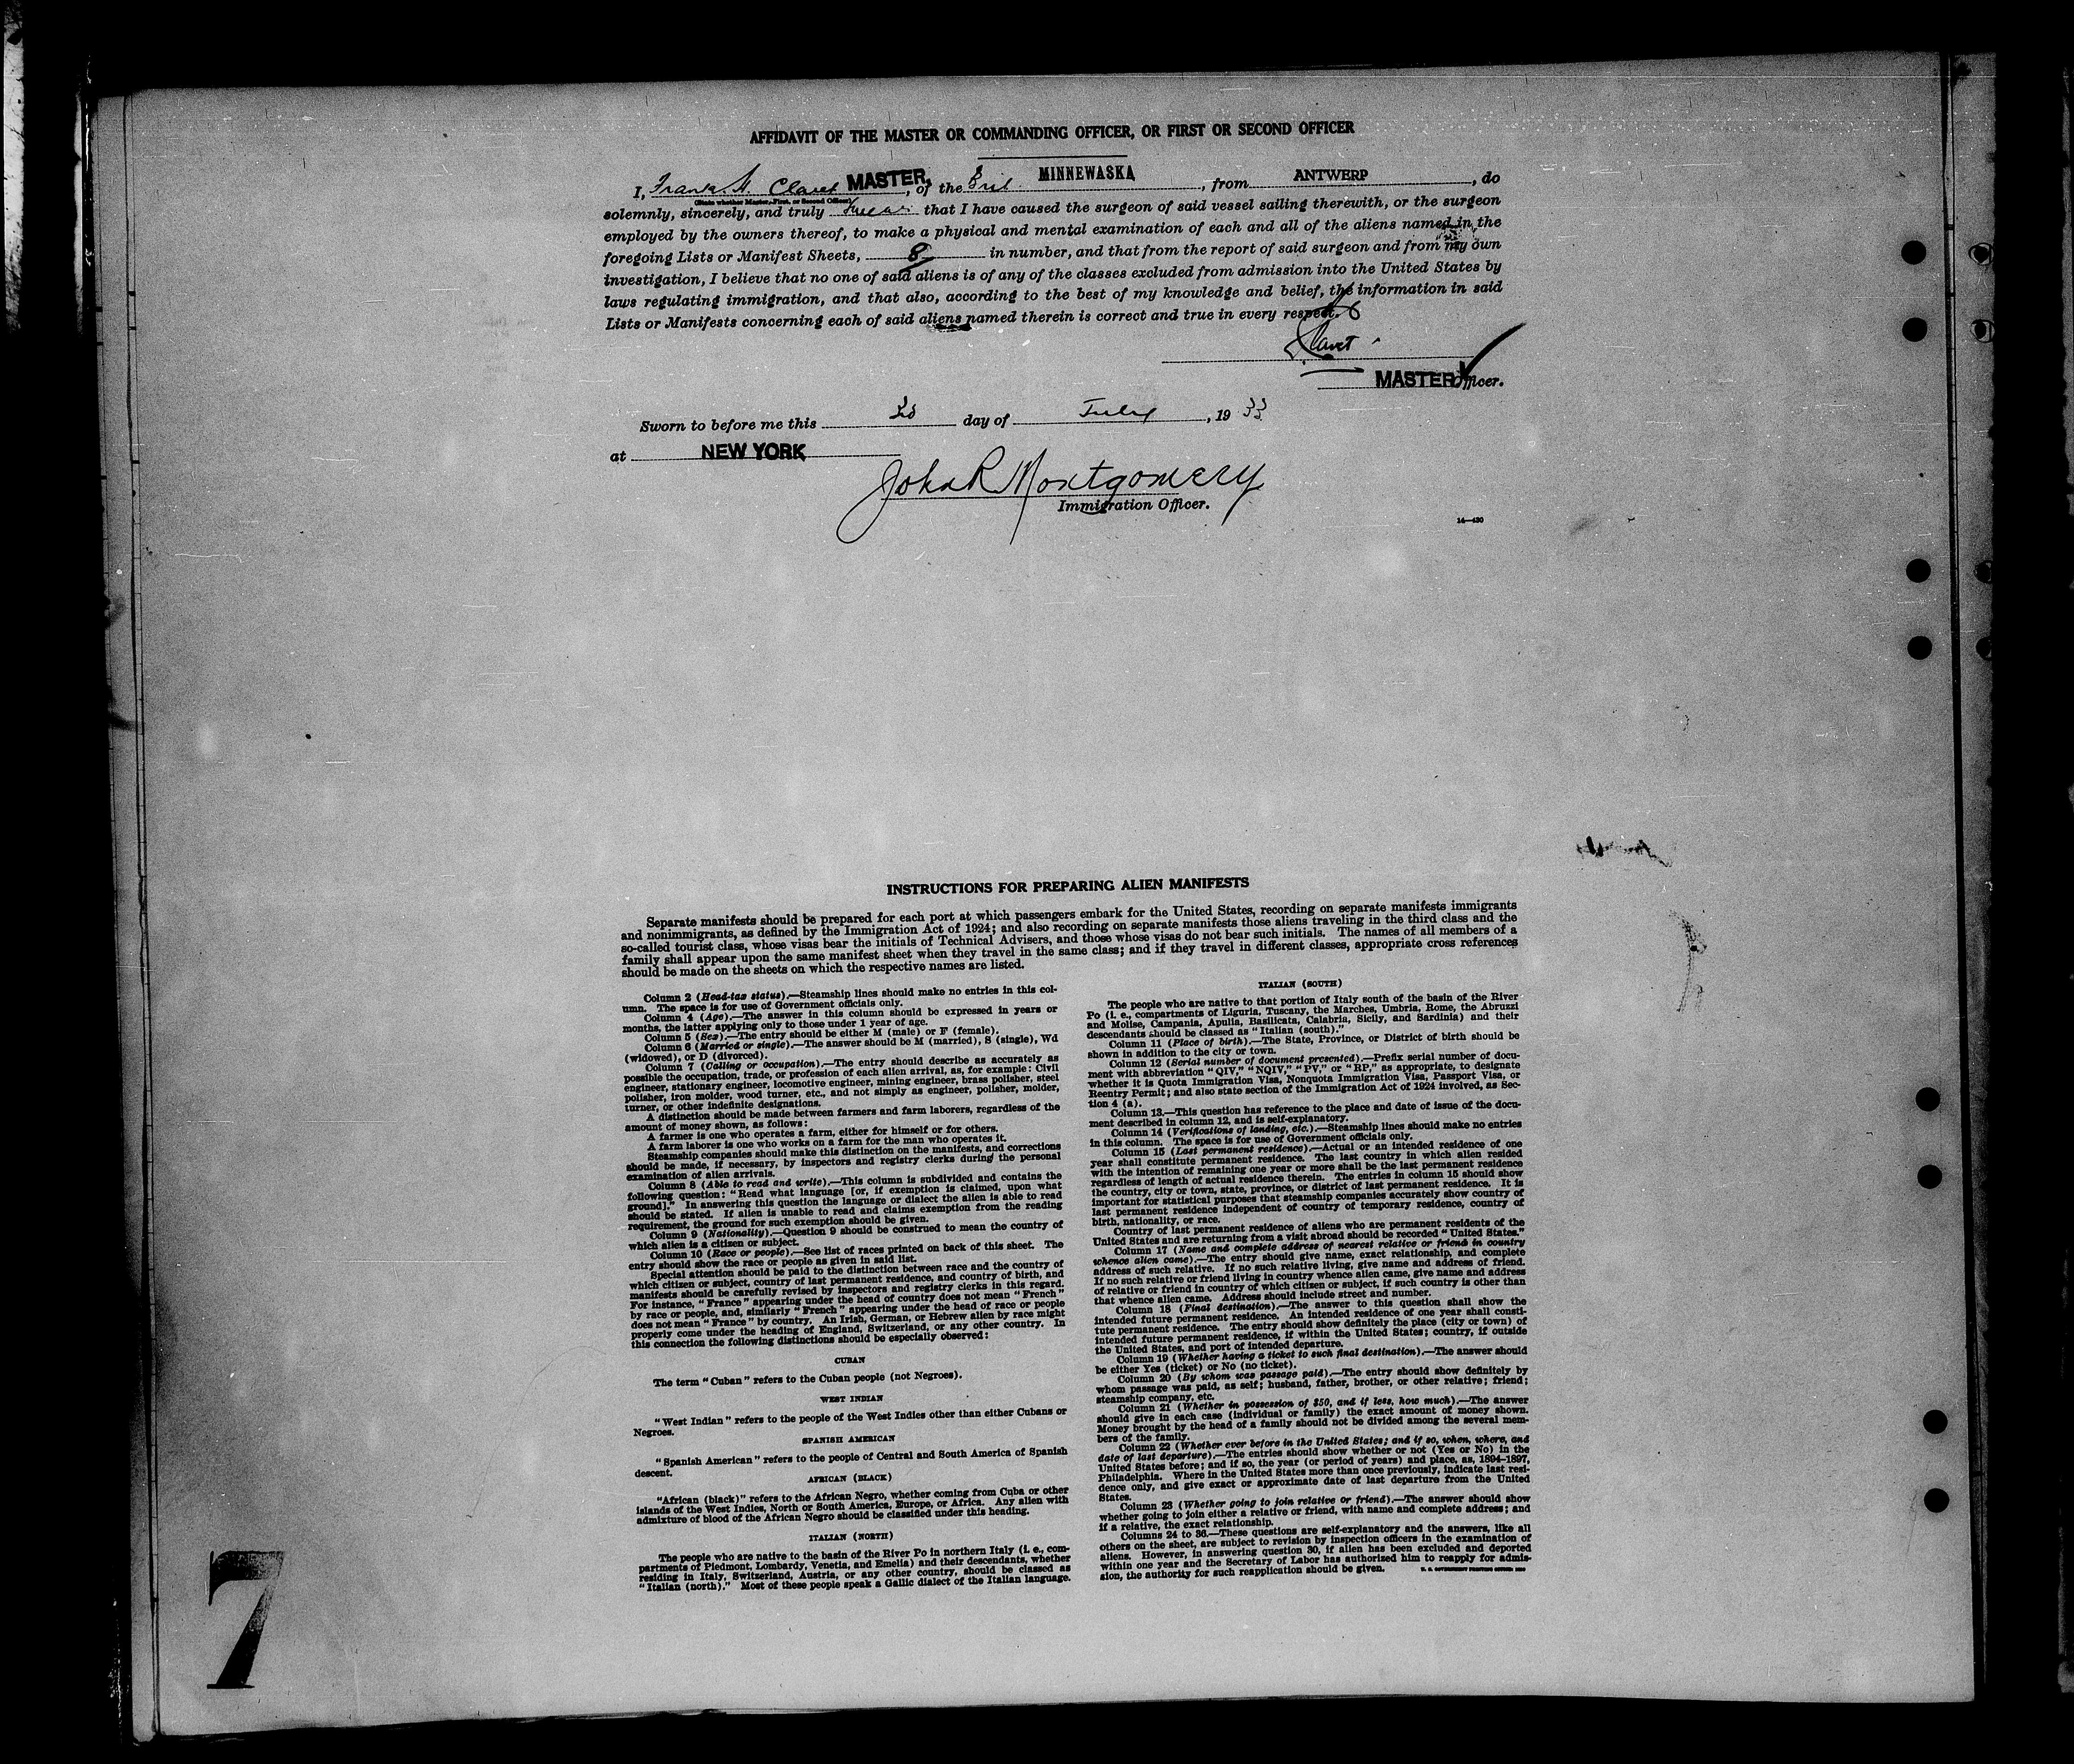 AFFIDAVIT OF THE MASTER OR COMMANDING OFFICER, OR FIRST OR SECOND OFFICER
I, Frank H. Claret MASTER, of the MINNEWASKA, from ANTWERP, do
(State whether Master, First, or Second Officer)
solemnly, sincerely, and truly swear that I have caused the surgeon of said vessel sailing therewith, or the surgeon
employed by the owners thereof, to make a physical and mental examination of each and all of the aliens named in the
foregoing Lists or Manifest Sheets, 8 in number, and that from the report of said surgeon and from my own
investigation, I believe that no one of said aliens is of any of the classes excluded from admission into the United States by
laws regulating immigration, and that also, according to the best of my knowledge and belief, the information in said
Lists or Manifests concerning each of said aliens named therein is correct and true in every respect.
Claret
MASTER Officer.
Sworn to before me this day of July, 1933
at NEW YORK
John R Montgomery
Immigration Officer.
14—430
INSTRUCTIONS FOR PREPARING ALIEN MANIFESTS
Separate manifests should be prepared for each port at which passengers embark for the United States, recording on separate manifests immigrants
and nonimmigrants, as defined by the Immigration Act of 1924; and also recording on separate manifests those aliens traveling in the third class and the
so-called tourist class, whose visas bear the initials of Technical Advisers, and those whose visas do not bear such initials. The names of all members of a
family shall appear upon the same manifest sheet when they travel in the same class; and if they travel in different classes, appropriate cross references
should be made on the sheets on which the respective names are listed.
Column 2 (Head-tax status).—Steamship lines should make no entries in this col-
umn. The space is for use of Government officials only.
Column 4 (Age).—The answer in this column should be expressed in years or
months, the latter applying only to those under 1 year of age.
Column 5 (Sex).—The entry should be either M (male) or F (female).
Column 6 (Married or single).—The answer should be M (married), S (single), Wd
(widowed), or D (divorced).
Column 7 (Calling or occupation).—The entry should describe as accurately as
possible the occupation, trade, or profession of each alien arrival, as, for example: Civil
engineer, stationary engineer, locomotive engineer, mining engineer, brass polisher, steel
polisher, iron molder, wood turner, etc., and not simply as engineer, polisher, molder,
turner, or other indefinite designations.
A distinction should be made between farmers and farm laborers, regardless of the
amount of money shown, as follows:
A farmer is one who operates a farm, either for himself or for others.
A farm laborer is one who works on a farm for the man who operates it.
Steamship companies should make this distinction on the manifests, and corrections
should be made, if necessary, by inspectors and registry clerks during the personal
examination of alien arrivals.
Column 8 (Able to read and write).—This column is subdivided and contains the
following question: "Read what language [or, if exemption is claimed, upon what
ground]." In answering this question the language or dialect the alien is able to read
should be stated. If alien is unable to read and claims exemption from the reading
requirement, the ground for such exemption should be given.
Column 9 (Nationality).—Question 9 should be construed to mean the country of
which alien is a citizen or subject.
Column 10 (Race or people).—See list of races printed on back of this sheet. The
entry should show the race or people as given in said list.
Special attention should be paid to the distinction between race and the country of
which citizen or subject, country of last permanent residence, and country of birth, and
manifests should be carefully revised by inspectors and registry clerks in this regard.
For instance, "France" appearing under the head of country does not mean "French"
by race or people, and, similarly "French" appearing under the head of race or people
does not mean "France" by country. An Irish, German, or Hebrew alien by race might
properly come under the heading of England, Switzerland, or any other country. In
this connection the following distinctions should be especially observed:
CUBAN
The term "Cuban" refers to the Cuban people (not Negroes).
WEST INDIAN
"West Indian" refers to the people of the West Indies other than either Cubans or
Negroes.
SPANISH AMERICAN
"Spanish American" refers to the people of Central and South America of Spanish
descent.
AFRICAN (BLACK)
"African (black)" refers to the African Negro, whether coming from Cuba or other
islands of the West Indies, North or South America, Europe, or Africa. Any alien with
admixture of blood of the African Negro should be classified under this heading.
ITALIAN (NORTH)
The people who are native to the basin of the River Po in northern Italy (i. e., com-
partments of Piedmont, Lombardy, Venetia, and Emelia) and their descendants, whether
residing in Italy, Switzerland, Austria, or any other country, should be classed as
"Italian (north)." Most of these people speak a Gallic dialect of the Italian language.
ITALIAN (SOUTH)
The people who are native to that portion of Italy south of the basin of the River
Po (i. e., compartments of Liguria, Tuscany, the Marches, Umbria, Rome, the Abruzzi
and Molise, Campania, Apulia, Basilicata, Calabria, Sicily, and Sardinia) and their
descendants should be classed as "Italian (south)."
Column 11 (Place of birth).—The State, Province, or District of birth should be
shown in addition to the city or town.
Column 12 (Serial number of document presented).—Prefix serial number of docu-
ment with abbreviation "QIV," "NQIV," "PV," or "RP," as appropriate, to designate
whether it is Quota Immigration Visa, Nonquota Immigration Visa, Passport Visa, or
Reentry Permit; and also state section of the Immigration Act of 1924 involved, as Sec-
tion 4 (a).
Column 13.—This question has reference to the place and date of issue of the docu-
ment described in column 12, and is self-explanatory.
Column 14 (Verifications of landing, etc.).—Steamship lines should make no entries
in this column. The space is for use of Government officials only.
Column 15 (Last permanent residence).—Actual or an intended residence of one
year shall constitute permanent residence. The last country in which alien resided
with the intention of remaining one year or more shall be the last permanent residence
regardless of length of actual residence therein. The entries in column 15 should show
the country, city or town, state, province, or district of last permanent residence. It is
important for statistical purposes that steamship companies accurately show country of
last permanent residence independent of country of temporary residence, country of
birth, nationality, or race.
Country of last permanent residence of aliens who are permanent residents of the
United States and are returning from a visit abroad should be recorded "United States."
Column 17 (Name and complete address of nearest relative or friend in country
whence alien came).—The entry should give name, exact relationship, and complete
address of such relative. If no such relative living, give name and address of friend.
If no such relative or friend living in country whence alien came, give name and address
of relative or friend in country of which citizen or subject, if such country is other than
that whence alien came. Address should include street and number.
Column 18 (Final destination).—The answer to this question shall show the
intended future permanent residence. An intended residence of one year shall consti-
tute permanent residence. The entry should show definitely the place (city or town) of
intended future permanent residence, if within the United States; country, if outside
the United States, and port of intended departure.
Column 19 (Whether having a ticket to such final destination).—The answer should
be either Yes (ticket) or No (no ticket).
Column 20 (By whom was passage paid).—The entry should show definitely by
whom passage was paid, as self; husband, father, brother, or other relative; friend;
steamship company, etc.
Column 21 (Whether in possession of $50, and if less, how much).—The answer
should give in each case (individual or family) the exact amount of money shown.
Money brought by the head of a family should not be divided among the several mem-
bers of the family.
Column 22 (Whether ever before in the United States; and if so, when, where, and
date of last departure).—The entries should show whether or not (Yes or No) in the
United States before; and if so, the year (or period of years) and place, as, 1894-1897,
Philadelphia. Where in the United States more than once previously, indicate last resi-
dence only, and give exact or approximate date of last departure from the United
States.
Column 23 (Whether going to join relative or friend).—The answer should show
whether going to join either a relative or friend, with name and complete address; and
if a relative, the exact relationship.
Columns 24 to 36.—These questions are self-explanatory and the answers, like all
others on the sheet, are subject to revision by inspection officers in the examination of
aliens. However, in answering question 30, if alien has been excluded and deported
within one year and the Secretary of Labor has authorized him to reapply for admis-
sion, the authority for such reapplication should be given.
7